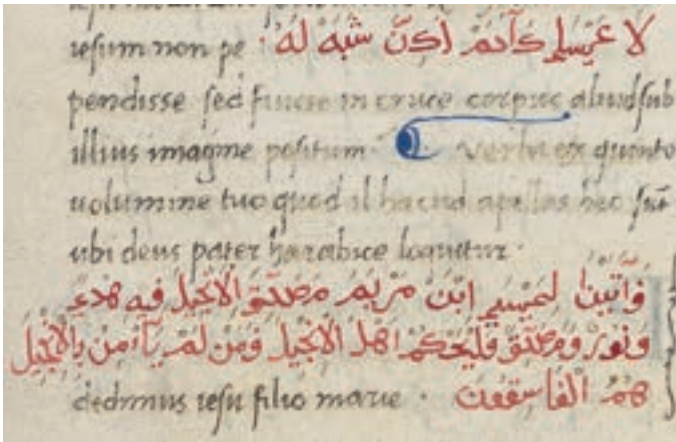 iesum non pe لا عيسلي كآدم لكن شبه له
pendisse sed fuisse in cruce corpus aliud sub
illius imagine positum verba ex quinto
uolumine tuo quod il hacind apellas hec sūt
ubi deus pater harabice loquitur
وآتينا لعيسي ابن مريم مصدق الانجيل فيه هدى
ونور ومصدق فليحكم اهل الانجيل ومن لم يآمن بالانجيل
dedimus iesu filio marie هم الفاسقون